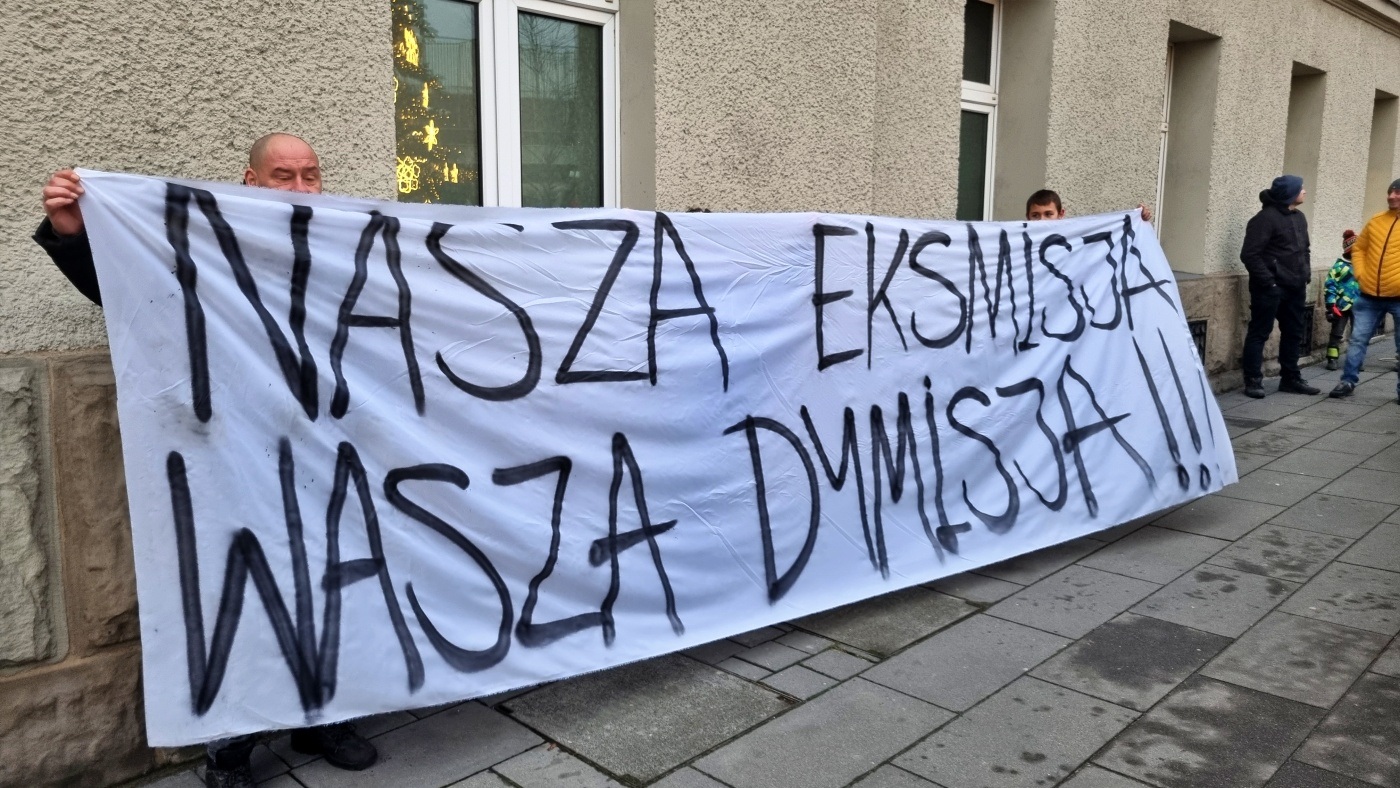 NASZA EKSMISJA
WASZA DYMISJA !!!